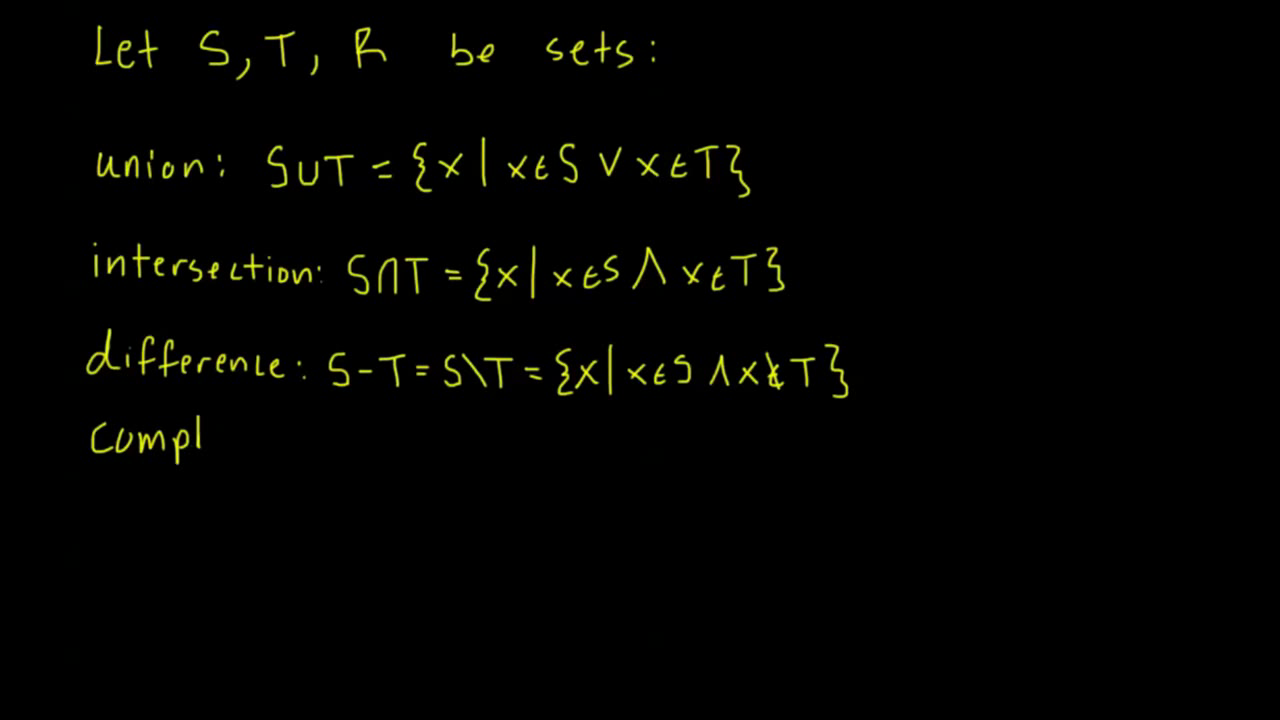 Let S, T, R be sets:
union: S∪T = {x | x∈S ∨ x∈T}
intersection: S∩T = {x | x∈S ∧ x∈T}
difference: S-T = S\T = {x | x∈S ∧ x∉T}
Compl